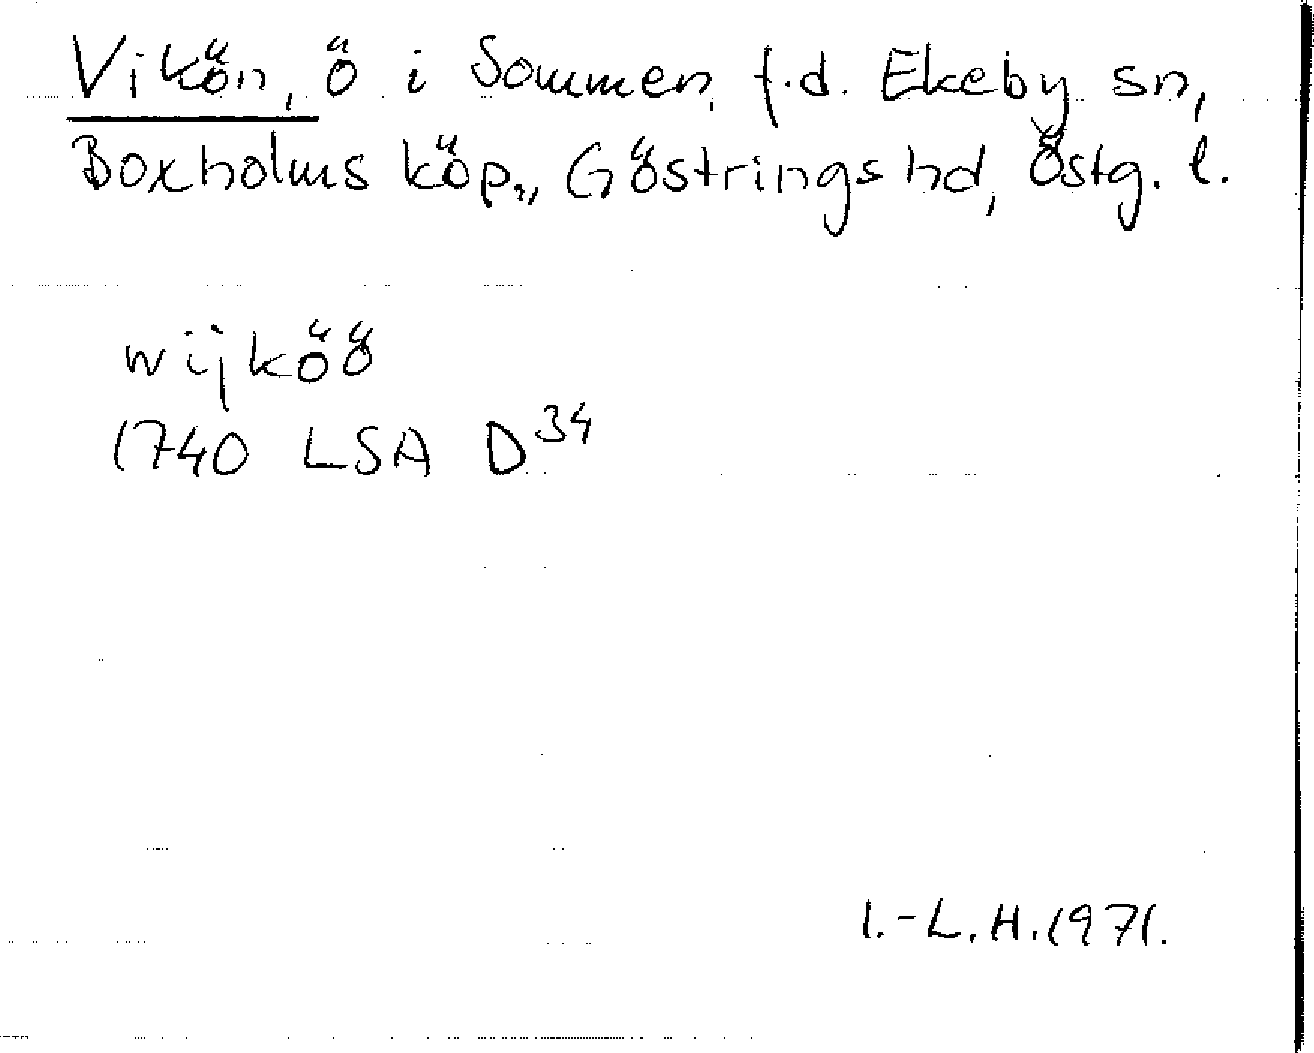 Vikön, ö i Sommen, f.d. Ekeby sn,
Boxholms köp., Göstrings hd, Östg. l.
wijköö
1740 LSA D³⁴
I.-L. H. 1971.